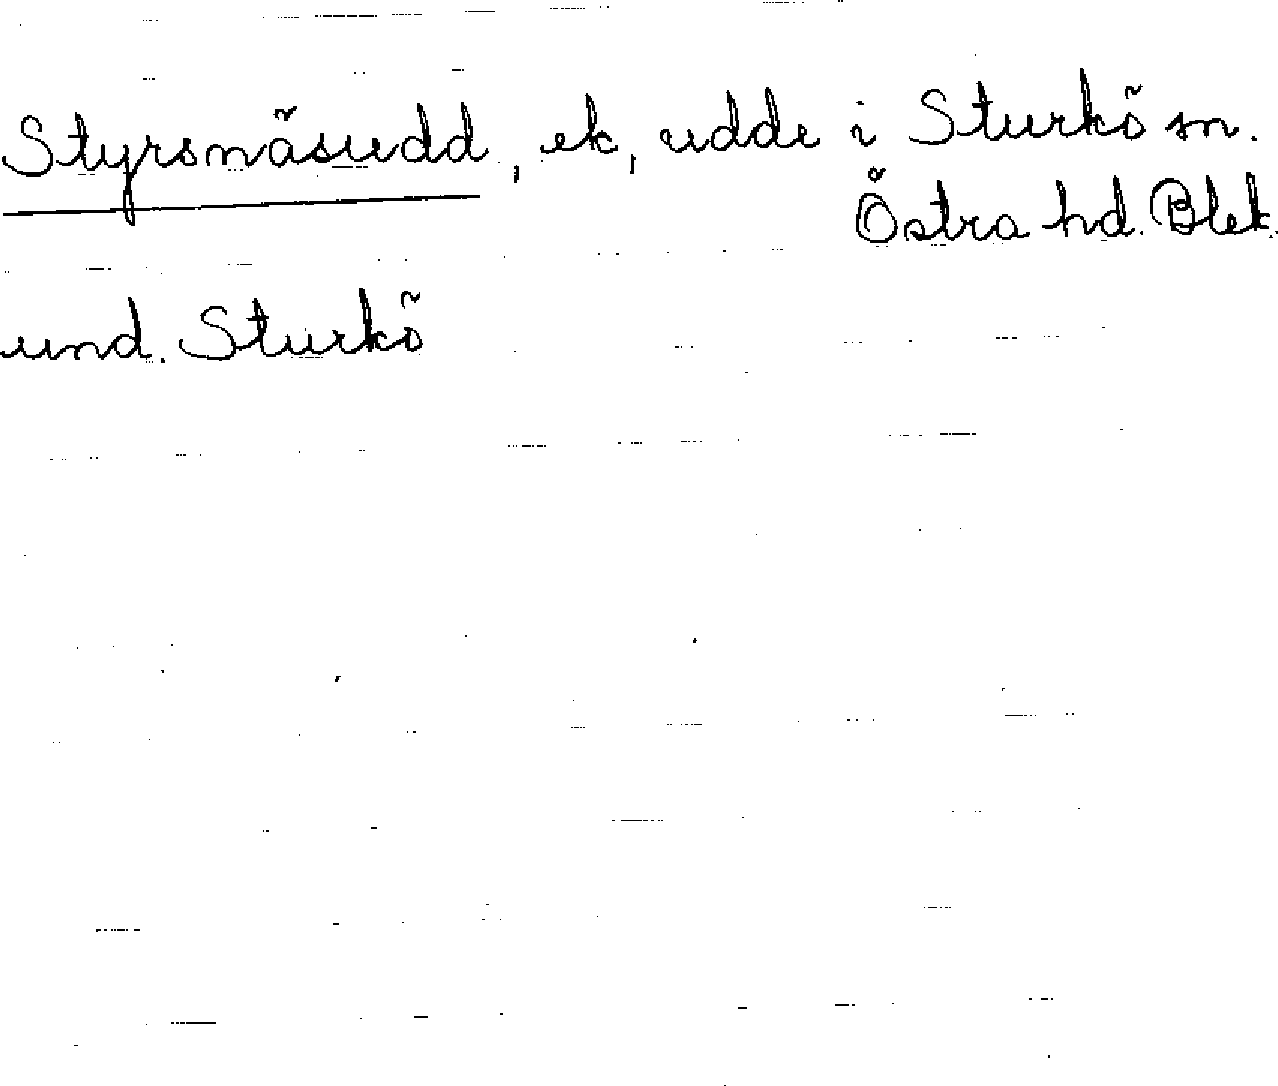 Styrsnäsudd, ek, udde i Sturkö sn.
Östra hd. Blek.
und. Sturkö